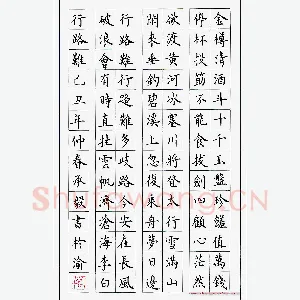 金樽清酒斗十千玉盤珍饈值萬錢
停杯投筯不能食拔劍四顧心茫然
欲渡黃河冰塞川將登太行雪滿山
閒來垂釣碧溪上忽復乘舟夢日邊
行路難行路難多歧路今安在長風
破浪會有時直挂雲帆濟滄海李白
行路難己丑年仲春承書於渝
Shufawang.CN